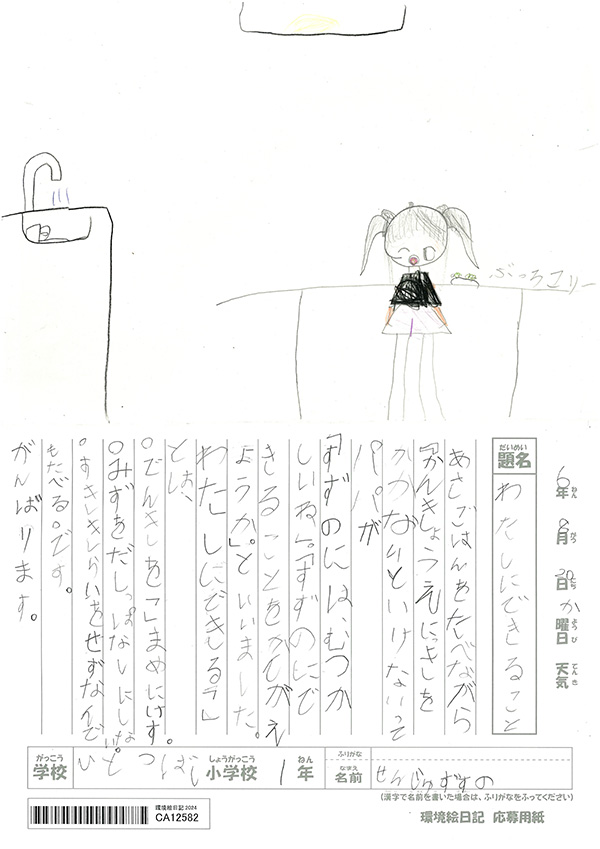 ぶっろコリー
6年 8月 20日 か曜日 天気
ねん がつ にち ようび てんき
だいめい
題名
わたしにできること
あさごはんをたべながら
「かんきょうえにっきを
かかないといけないって
パパが
「すずのには、むつか
しいね。」「すずのにで
きることをかんがえ
ようか」といいました。
わたしにできるう」
とは、
○でんきをこまめにけす。
○みずをだしっぱなしにしない。
○すききらいをせずなんで
もたべる。です。
がんばります。
がっこう
学校
しょうがっこう
小学校
1年
ねん
ふりがな
なまえ
名前
せんじゅすずの
(漢字で名前を書いた場合は、ふりがなをふってください)
環境絵日記2024
CA12582
環境絵日記 応募用紙